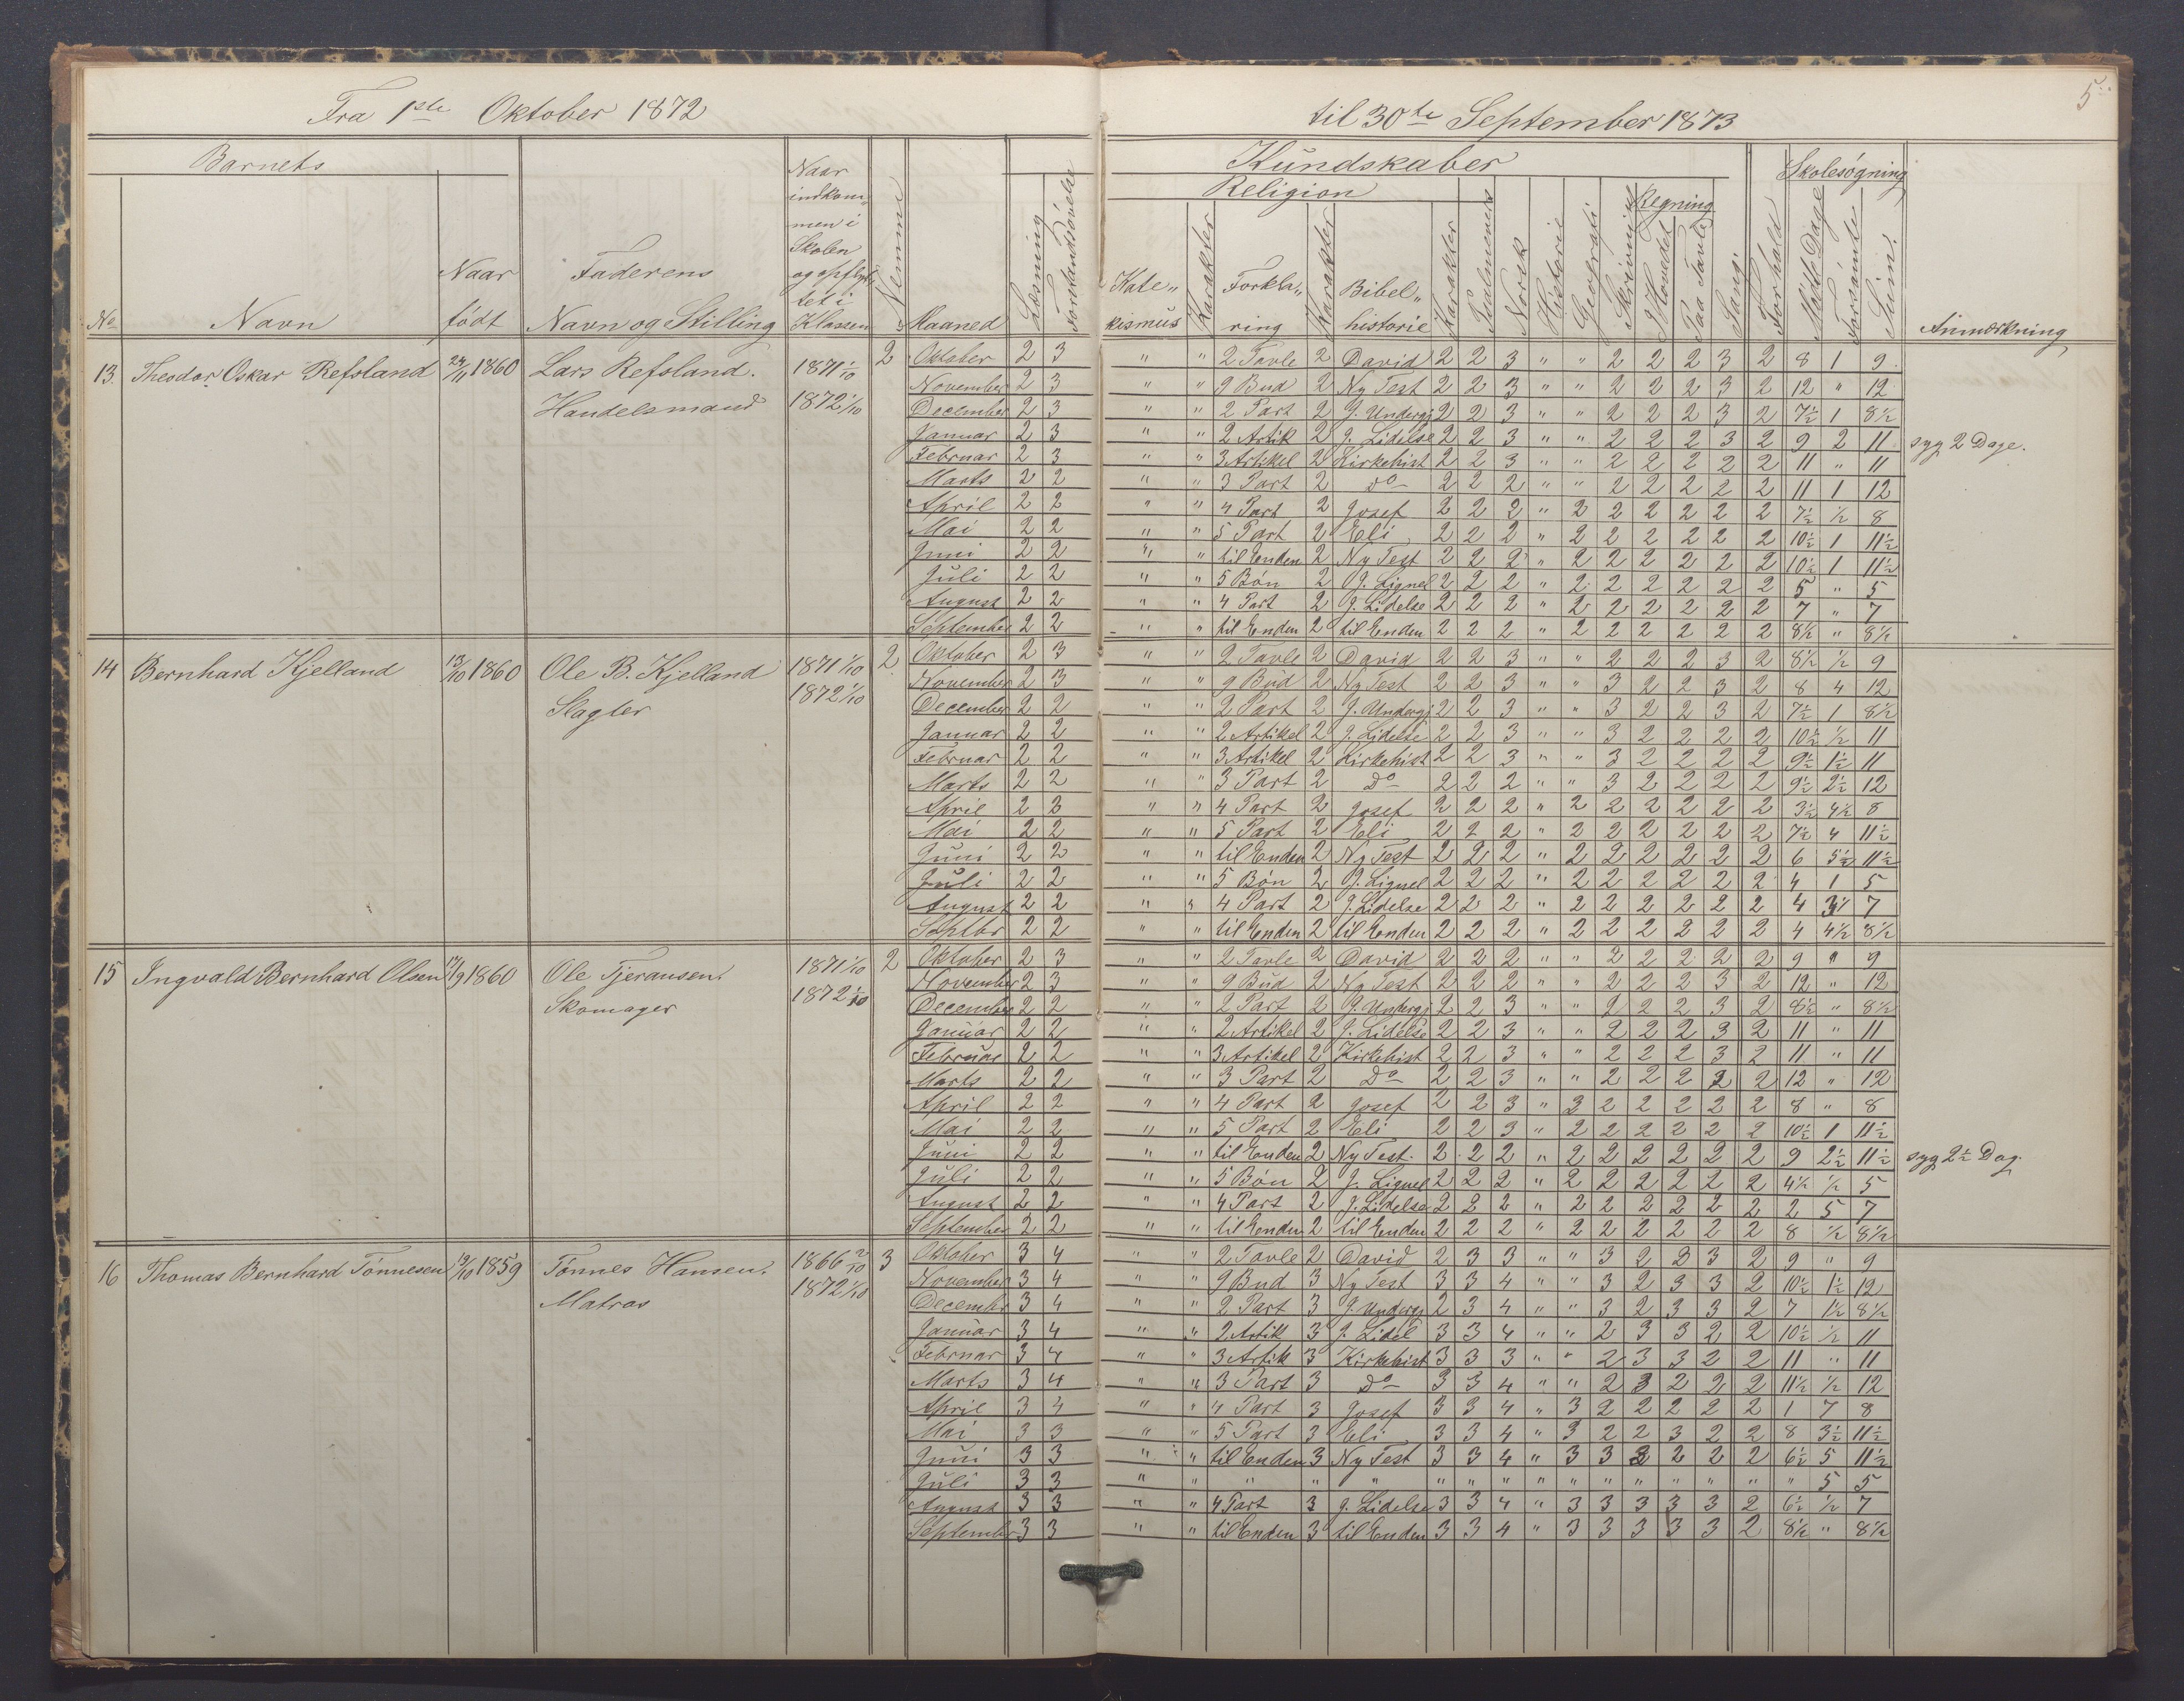 Fra 1ste Oktober 1872 til 30te September 1873
5.
Barnets Kundskaber Skolesøgning
Religion Regning
No Navn Naar født Faderens Navn og Stilling Naar indkommen i Skolen og opflyttet i Klassen Nemme Maaned Læsning Forstandsøvelse Katekismus Karakter Forklaring Karakter Bibelhistorie Karakter Psalmevers Norsk Historie Geografi Skrivning I Hovedet Paa Tavle Sang. Forhold Mødte Dage Forsømte Sum. Anmærkning
13. Theodor Oskar Refsland 24/11 1860 Lars Refsland. 1871 1/10 2 Oktober 2 3 " " 2 Tavle 2 David 2 2 3 " " 2 2 2 3 2 8 1 9
Handelsmand 1872 1/10 November 2 3 " " 9 Bud 2 Ny Test 2 2 3 " " 2 2 2 3 2 12 " 12
December 2 3 " " 2 Part 2 J. Undergj 2 2 3 " " 2 2 2 3 2 7½ 1 8½
Januar 2 3 " " 2 Artik 2 J. Lidelse 2 2 3 " " 2 2 2 3 2 9 2 11 syg 2 Dage.
Februar 2 3 " " 3 Artikel 2 Kirkehist 2 2 3 " " 2 2 2 2 2 11 " 11
Marts 2 2 " " 3 Part 2 do 2 2 2 " " 2 2 2 2 2 11 1 12
April 2 2 " " 4 Part 2 Josef 2 2 2 " 2 2 2 2 2 2 7½ ½ 8
Mai 2 2 " " 5 Part 2 Eli 2 2 2 " 2 2 2 2 2 2 10½ 1 11½
Juni 2 2 " " til Enden 2 Ny Test 2 2 2 " 2 2 2 2 2 2 10½ 1 11½
Juli 2 2 " " 5 Bøn 2 J. Lignel 2 2 2 " 2 2 2 2 2 2 5 " 5
August 2 2 " " 4 Part 2 J. Lidelse 2 2 2 " 2 2 2 2 2 2 7 " 7
September 2 2 " " til Enden 2 til Enden 2 2 2 " 2 2 2 2 2 2 8½ " 8½
14 Bernhard Kjelland 13/10 1860 Ole B. Kjelland 1871 1/10 2 Oktober 2 3 " " 2 Tavle 2 David 2 2 3 " " 2 2 2 3 2 8½ ½ 9
Slagter 1872 1/10 November 2 3 " " 9 Bud 2 Ny Test 2 2 3 " " 3 2 2 3 2 8 4 12
December 2 2 " " 2 Part 2 J. Undergj 2 2 3 " " 3 2 2 3 2 7½ 1 8½
Januar 2 2 " " 2 Artikel 2 J. Lidelse 2 2 3 " " 3 2 2 2 2 10½ ½ 11
Februar 2 2 " " 3 Artikel 2 Kirkehist 2 2 3 " " 3 2 2 2 2 9½ 1½ 11
Marts 2 2 " " 3 Part 2 Do 2 2 2 " " 3 2 2 2 2 9½ 2½ 12
April 2 2 " " 4 Part 2 Josef 2 2 2 " 2 2 2 2 2 2 3½ 4½ 8
Mai 2 2 " " 5 Part 2 Eli 2 2 2 " 2 2 2 2 2 2 7½ 4 11½
Juni 2 2 " " til Enden 2 Ny Test 2 2 2 " 2 2 2 2 2 2 6 5½ 11½
Juli 2 2 " " 5 Bøn 2 J. Lignel 2 2 2 " 2 2 2 2 2 2 4 1 5
August 2 2 " " 4 Part 2 J. Lidelse 2 2 2 " 2 2 2 2 2 2 4 7
Septbr 2 2 " " til Enden 2 til Enden 2 2 2 " 2 2 2 2 2 2 4 4½ 8½
15 Ingvald Bernhard Olsen 17/9 1860 Ole Tjeransen. 1871 1/10 2 Oktober 2 3 " " 2 Tavle 2 David 2 2 2 " " 2 2 2 2 2 9 " 9
Skomager 1872 1/10 November 2 3 " " 9 Bud 2 Ny Test 2 2 2 " " 2 2 2 3 2 12 " 12
December 2 2 " " 2 Part 2 J. Undergj 2 2 3 " " 2 2 2 3 2 8½ " 8½
Januar 2 2 " " 2 Artikel 2 J. Lidelse 2 2 3 " " 2 2 2 3 2 11 " 11
Februar 2 2 " " 3 Artikel 2 Kirkehist 2 2 3 " " 2 2 2 3 2 11 " 11
Marts 2 2 " " 3 Part 2 Do 2 2 3 " " 2 2 2 2 2 12 " 12
April 2 2 " " 4 Part 2 Josef 2 2 3 " 3 2 2 2 2 2 8 " 8
Mai 2 2 " " 5 Part 2 Eli 2 2 3 " 2 2 2 2 2 2 10½ 1 11½
Juni 2 2 " " til Enden 2 Ny Test. 2 2 2 " 2 2 2 2 2 2 9 2½ 11½ syg 2½ Dag.
Juli 2 2 " " 5 Bøn 2 J. Lignel 2 2 2 " 2 2 2 2 2 2 4½ ½ 5
August 2 2 " " 4 Part 2 J. Lidelse 2 2 2 " 2 2 2 2 2 2 2 5 7
September 2 2 " " til Enden 2 til Enden 2 2 2 " 2 2 2 2 2 2 8 ½ 8½
16 Thomas Bernhard Tønnesen 19/10 1859 Tønnes Hansen. 1866 2/10 3 Oktober 3 4 " " 2 Tavle 2 David 2 3 3 " " 3 2 3 3 2 9 " 9
Matros 1872 1/10 November 3 4 " " 9 Bud 3 Ny Test 3 3 4 " " 3 2 3 3 2 10½ 1½ 12
December 3 4 " " 2 Part 3 J. Undergj 2 3 4 " " 3 2 3 3 2 7 1½ 8½
Januar 3 4 " " 2 Artik 3 J. Lidel 3 3 4 " " 2 3 3 2 2 10½ ½ 11
Februar 3 4 " " 3 Artik 3 Kirkehist 3 3 3 " " 2 3 3 2 2 11 " 11
Marts 3 4 " " 3 Part 3 Do 3 3 4 " " 2 3 2 2 2 11½ ½ 12
April 3 4 " " 4 Part 3 Josef 3 3 4 " 3 2 2 2 2 2 1 7 8
Mai 3 3 " " 5 Part 3 Eli 3 3 4 " 3 2 2 3 2 2 8 3½ 11½
Juni 3 3 " " til Enden 3 Ny Test 3 3 4 " 3 3 3 2 2 2 6½ 5 11½
Juli 3 3 " " " " " " " " " " " " " " " " 5 5
August 3 3 " " 4 Part 3 J. Lidelse 3 3 4 " 3 3 3 3 3 2 6½ ½ 7
September 3 3 " " til Enden 3 til Enden 3 3 4 " 3 3 3 3 3 2 8½ " 8½